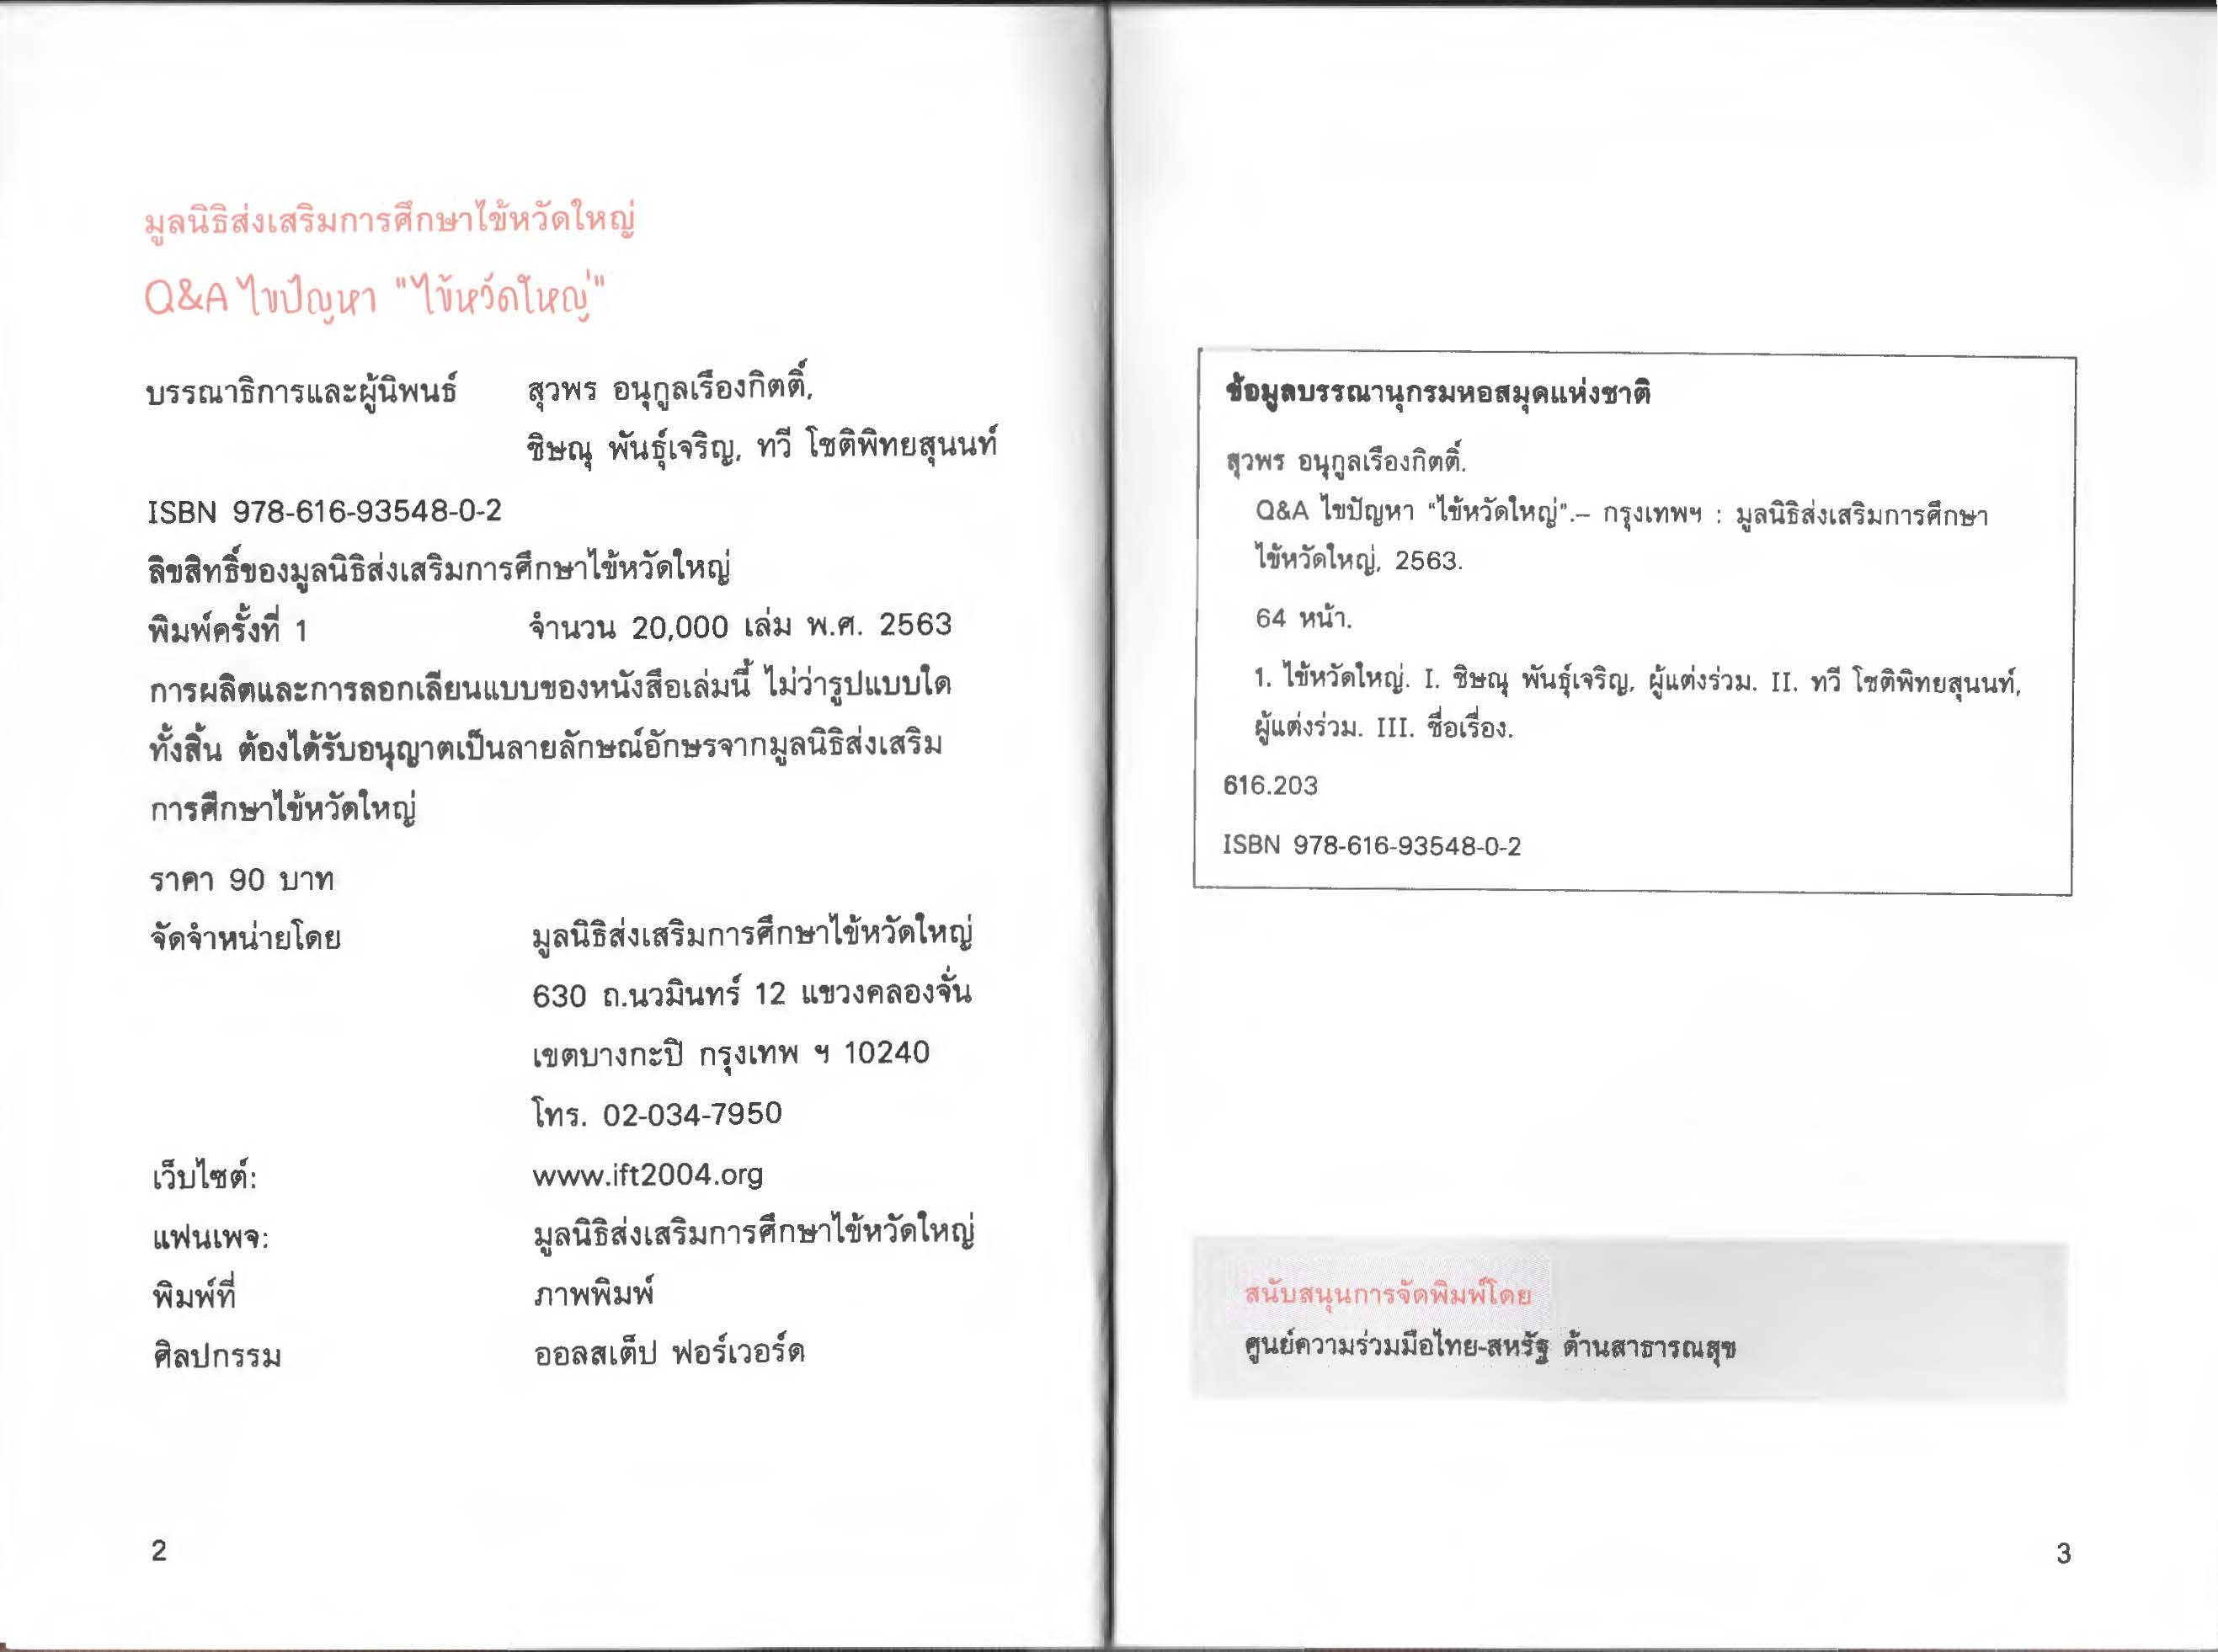 มูลนิธิส่งเสริมการศึกษาไข้หวัดใหญ่
Q&A ไขปัญหา "ไข้หวัดใหญ่"
บรรณาธิการและผู้นิพนธ์ สุวพร อนุกูลเรืองกิตติ์,
ชิษณุ พันธุ์เจริญ, ทวี โชติพิทยสุนนท์
ISBN 978-616-93548-0-2
ลิขสิทธิ์ของมูลนิธิส่งเสริมการศึกษาไข้หวัดใหญ่
พิมพ์ครั้งที่ 1 จำนวน 20,000 เล่ม พ.ศ. 2563
การผลิตและการลอกเลียนแบบของหนังสือเล่มนี้ ไม่ว่ารูปแบบใด
ทั้งสิ้น ต้องได้รับอนุญาตเป็นลายลักษณ์อักษรจากมูลนิธิส่งเสริม
การศึกษาไข้หวัดใหญ่
ราคา 90 บาท
จัดจำหน่ายโดย มูลนิธิส่งเสริมการศึกษาไข้หวัดใหญ่
630 ถ.นวมินทร์ 12 แขวงคลองจั่น
เขตบางกะปิ กรุงเทพ ฯ 10240
โทร. 02-034-7950
เว็บไซต์: www.ift2004.org
แฟนเพจ: มูลนิธิส่งเสริมการศึกษาไข้หวัดใหญ่
พิมพ์ที่ ภาพพิมพ์
ศิลปกรรม ออลสเต็ป ฟอร์เวอร์ด
2
ข้อมูลบรรณานุกรมหอสมุดแห่งชาติ
สุวพร อนุกูลเรืองกิตติ์.
Q&A ไขปัญหา "ไข้หวัดใหญ่".– กรุงเทพฯ : มูลนิธิส่งเสริมการศึกษา
ไข้หวัดใหญ่, 2563.
64 หน้า.
1. ไข้หวัดใหญ่. I. ชิษณุ พันธุ์เจริญ, ผู้แต่งร่วม. II. ทวี โชติพิทยสุนนท์,
ผู้แต่งร่วม. III. ชื่อเรื่อง.
616.203
ISBN 978-616-93548-0-2
สนับสนุนการจัดพิมพ์โดย
ศูนย์ความร่วมมือไทย-สหรัฐ ด้านสาธารณสุข
3